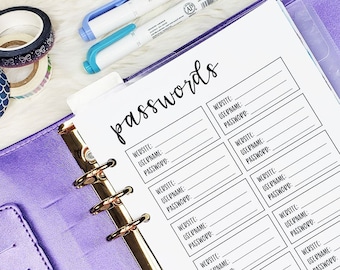 passwords
WEBSITE:
USERNAME:
PASSWORD:
WEBSITE:
USERNAME:
PASSWORD:
WEBSITE:
USERNAME:
PASSWORD:
WEBSITE:
USERNAME:
PASSWORD:
WEBSITE:
USERNAME:
PASSWORD:
WEBSITE:
USERNAME:
PASSWORD:
WEBSITE:
USERNAME:
PASSWORD:
WEBSITE:
USERNAME:
PASSWORD:
AP